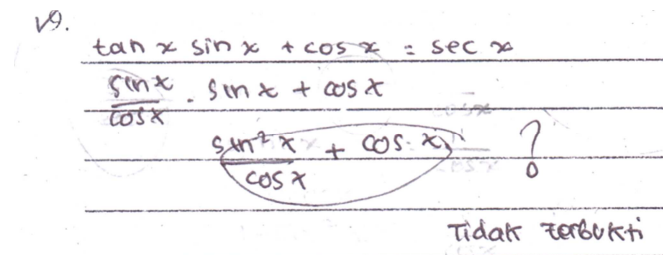 19.
tan x sin x + cos x = sec x
sin x / cos x . sin x + cos x
sin² x / cos x + cos x ?
Tidak terbukti